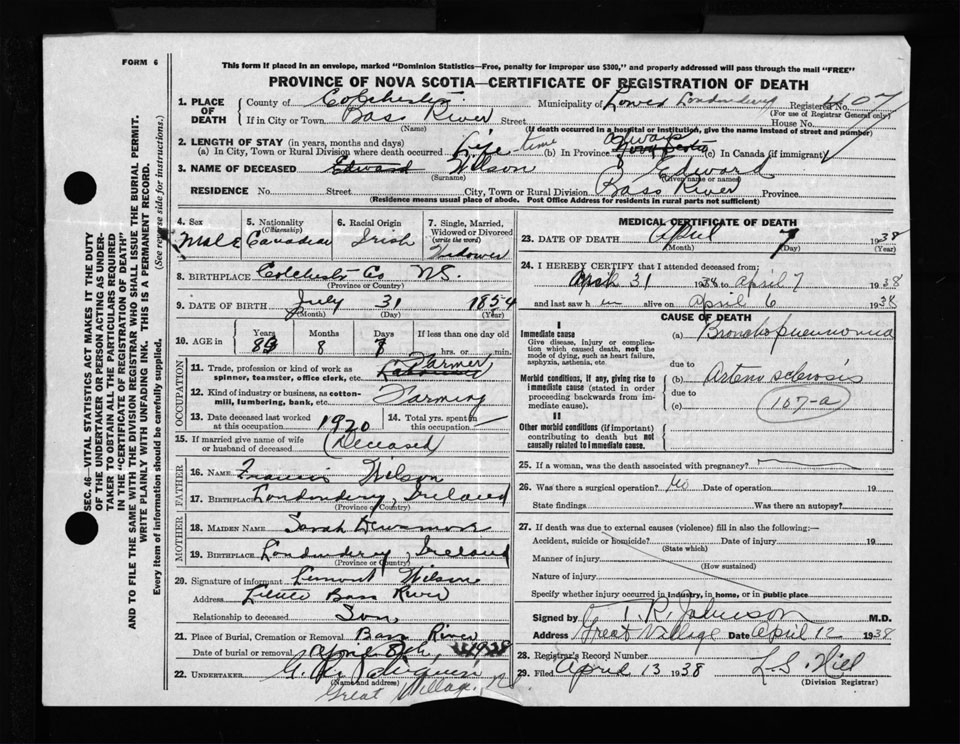 FORM 6
This form if placed in an envelope, marked "Dominion Statistics—Free, penalty for improper use $300," and properly addressed will pass through the mail "FREE"
PROVINCE OF NOVA SCOTIA—CERTIFICATE OF REGISTRATION OF DEATH
SEC. 46—VITAL STATISTICS ACT MAKES IT THE DUTY
OF THE UNDERTAKER OR PERSON ACTING AS UNDER-
TAKER TO OBTAIN ALL THE PARTICULARS REQUIRED
IN THE "CERTIFICATE OF REGISTRATION OF DEATH"
AND TO FILE THE SAME WITH THE DIVISION REGISTRAR WHO SHALL ISSUE THE BURIAL PERMIT.
WRITE PLAINLY WITH UNFADING INK. THIS IS A PERMANENT RECORD.
Every item of information should be carefully supplied. (See reverse side for instructions.)
1. PLACE OF DEATH County of Colchester Municipality of Lower Londonderry Registered No. 407
(For use of Registrar General only)
If in City or Town Bass River Street House No.
(Name) (If death occurred in a hospital or institution, give the name instead of street and number)
2. LENGTH OF STAY (in years, months and days)
(a) In City, Town or Rural Division where death occurred Life time (b) In Province always Nova Scotia (c) In Canada (if immigrant)
3. NAME OF DECEASED Edward Wilson Edward
(Surname) (Given name or names)
RESIDENCE No. Street City, Town or Rural Division Bass River Province
(Residence means usual place of abode. Post Office Address for residents in rural parts not sufficient)
4. Sex Male
5. Nationality (Citizenship) Canadian
6. Racial Origin Irish
7. Single, Married, Widowed or Divorced (write the word) Widower
8. BIRTHPLACE Colchester Co NS.
(Province or Country)
9. DATE OF BIRTH July 31 1854
(Month) (Day) (Year)
10. AGE in Years 83 Months 8 Days 7 If less than one day old
hrs. or min.
OCCUPATION
11. Trade, profession or kind of work as spinner, teamster, office clerk, etc. Farmer
12. Kind of industry or business, as cotton-mill, lumbering, bank, etc. Farming
13. Date deceased last worked at this occupation 1920
14. Total yrs. spent in this occupation
15. If married give name of wife or husband of deceased (Deceased)
FATHER
16. NAME Francis Wilson
17. BIRTHPLACE Londonderry, Ireland
(Province or Country)
MOTHER
18. MAIDEN NAME Sarah
19. BIRTHPLACE Londonderry, Ireland
(Province or Country)
20. Signature of informant Lemont Wilson
Address Little Bass River
Relationship to deceased Son
21. Place of Burial, Cremation or Removal Bass River
Date of burial or removal April 8th, 1938
22. UNDERTAKER G.
(Name and address)
Great Village, N.
MEDICAL CERTIFICATE OF DEATH
23. DATE OF DEATH April 7 1938
(Month) (Day) (Year)
24. I HEREBY CERTIFY that I attended deceased from:
Mch 31 1938 to April 7 1938
and last saw h im alive on April 6 1938
CAUSE OF DEATH
I
Immediate cause (a) Bronchopneumonia
Give disease, injury or complication which caused death, not the mode of dying, such as heart failure, asphyxia, asthenia, etc.
due to
Morbid conditions, if any, giving rise to immediate cause (stated in order proceeding backwards from immediate cause).
(b) Arterio sclerosis
due to
(c) 107-a
II
Other morbid conditions (if important) contributing to death but not causally related to immediate cause.
25. If a woman, was the death associated with pregnancy?
26. Was there a surgical operation? No Date of operation 19
State findings Was there an autopsy?
27. If death was due to external causes (violence) fill in also the following:—
Accident, suicide or homicide? Date of injury 19
(State which)
Manner of injury
(How sustained)
Nature of injury
Specify whether injury occurred in industry, in home, or in public place
Signed by T. R. Johnson M.D.
Address Great Village Date April 12 1938
28. Registrar's Record Number
29. Filed April 13 1938 L. S. Hill
(Division Registrar)